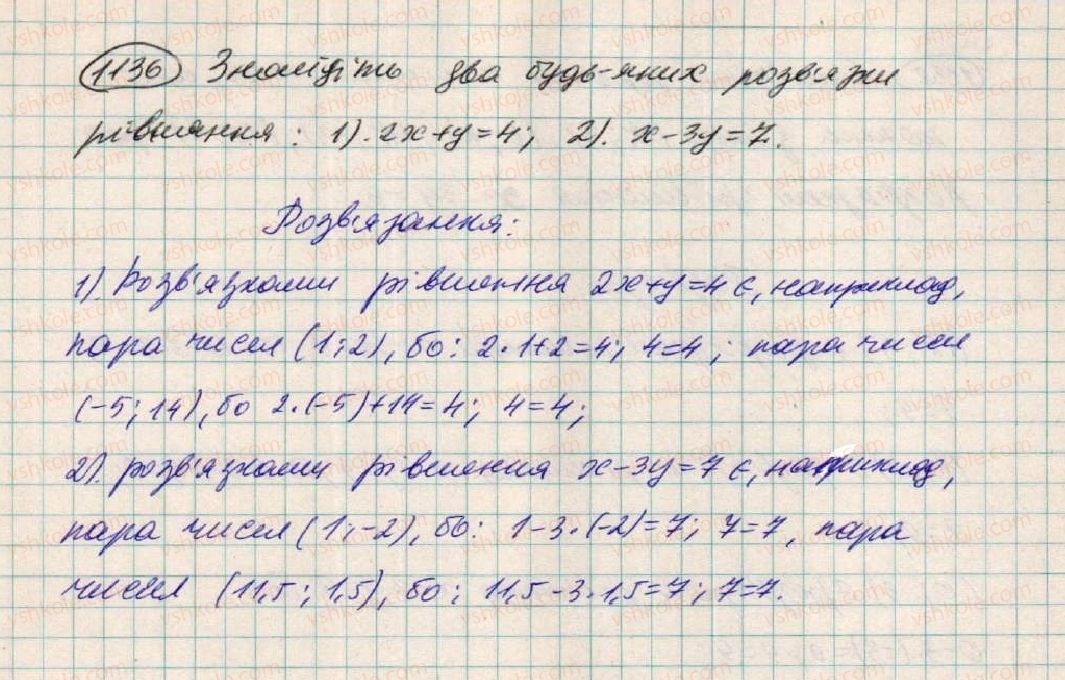 1136 Знайдіть два будь-яких розв'язки
рівняння: 1). 2x+y=4; 2). x-3y=7.
Розв'язання:
1). Розв'язками рівняння 2x+y=4 є, наприклад,
пара чисел (1;2), бо: 2·1+2=4; 4=4; пара чисел
(-5; 14), бо 2·(-5)+14=4; 4=4;
2). розв'язками рівняння x-3y=7 є, наприклад,
пара чисел (1;-2), бо: 1-3·(-2)=7; 7=7, пара
чисел (11,5; 1,5), бо: 11,5-3·1,5=7; 7=7.